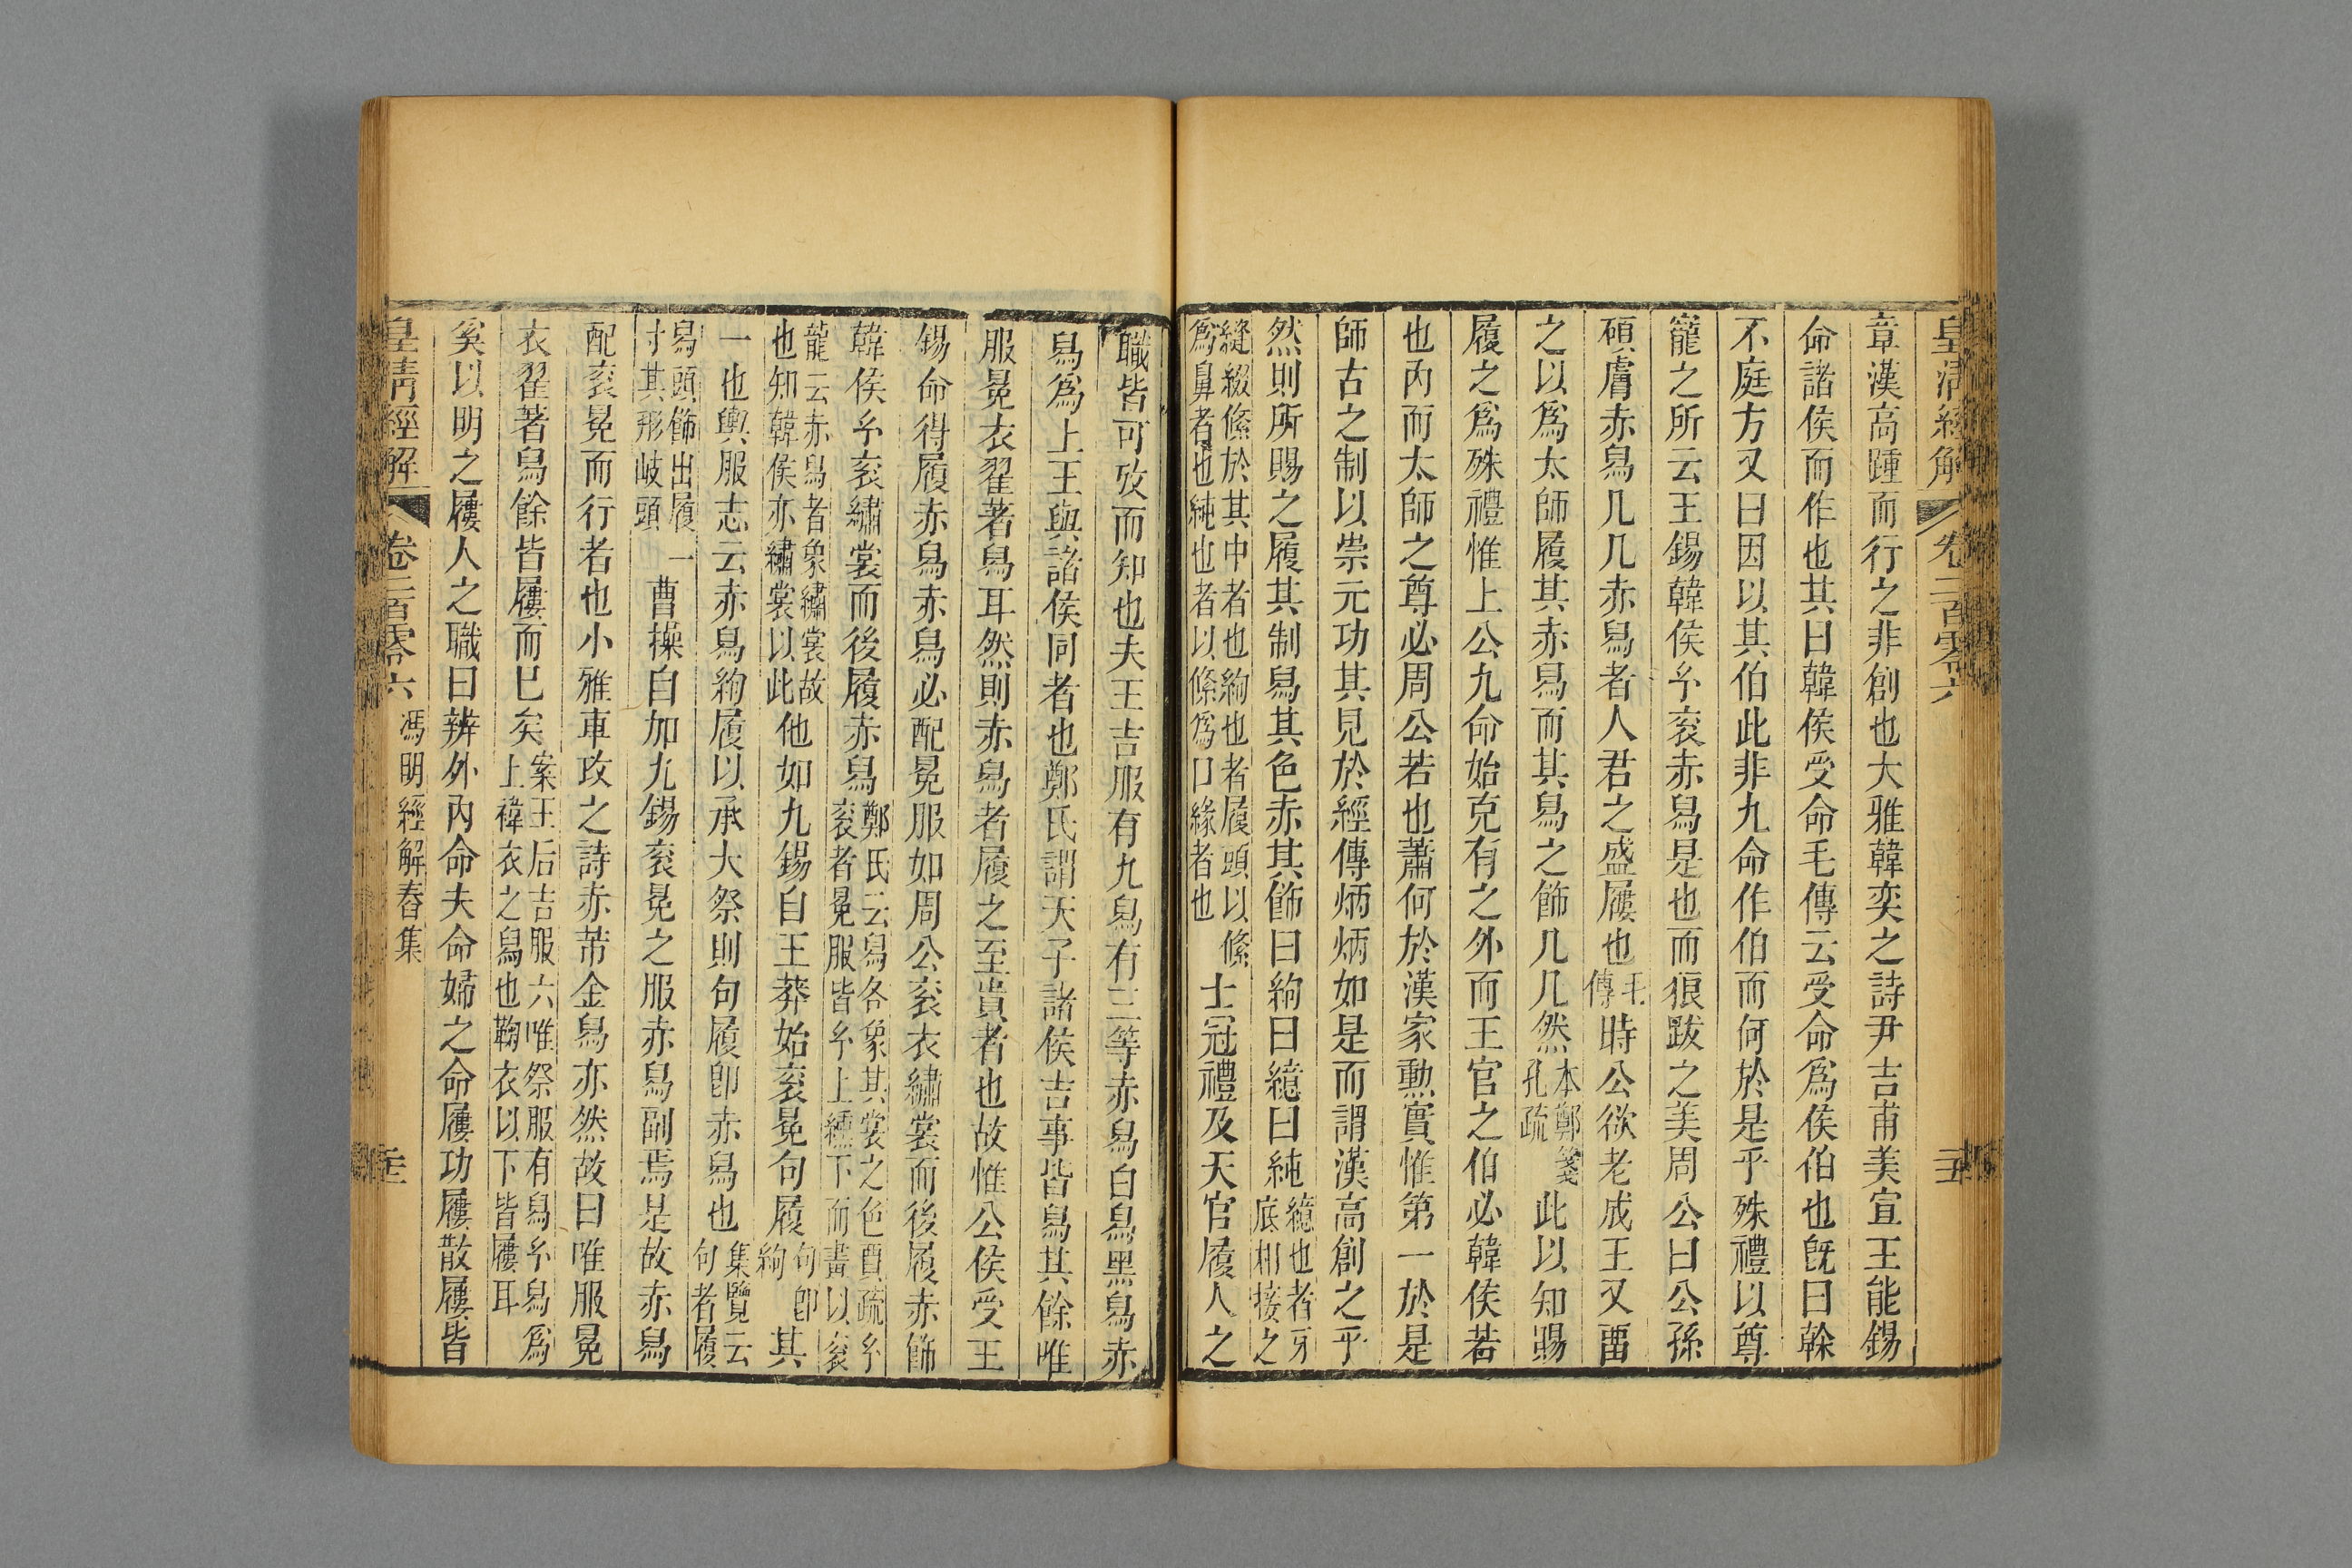 皇清經解 卷二百零六
章漢高踵而行之非創也大雅韓奕之詩尹吉甫美宣王能錫
命諸侯而作也其曰韓侯受命毛傳云受命為侯伯也旣曰榦
不庭方又曰因以其伯此非九命作伯而何於是乎殊禮以尊
寵之所云王錫韓侯玄袞赤舄是也而狼跋之美周公曰公孫
碩膚赤舄几几赤舄者人君之盛屨也毛傳時公欲老成王又畱
之以為太師履其赤舄而其舄之飾几几然本鄭箋孔疏此以知賜
履之為殊禮惟上公九命始克有之外而王官之伯必韓侯若
也內而太師之尊必周公若也蕭何於漢家勳實惟第一於是
師古之制以崇元功其見於經傳炳炳如是而謂漢高創之乎
然則所賜之履其制舄其色赤其飾曰絇曰繶曰純繶也者牙底相接之
縫綴絛於其中者也絇也者履頭以絛為鼻者也純也者以絛為口緣者也士冠禮及天官屨人之
職皆可攷而知也夫王吉服有九舄有三等赤舄白舄黑舄赤
舄為上王與諸侯同者也鄭氏謂天子諸侯吉事皆舄其餘唯
服冕衣翟著舄耳然則赤舄者履之至貴者也故惟公侯受王
錫命得履赤舄赤舄必配冕服如周公袞衣繡裳而後履赤飾
韓侯玄袞繡裳而後履赤舄鄭氏云舄各象其裳之色賈疏玄袞者冕服皆玄上纁下而畫以袞
龍云赤舄者象繡裳故也知韓侯亦繡裳以此他如九錫自王莽始袞冕句履句卽絇其
一也輿服志云赤舄絇履以承大祭則句履卽赤舄也集覽云句者履
舄頭飾出履一寸其形岐頭曹操自加九錫袞冕之服赤舄副焉是故赤舄
配袞冕而行者也小雅車攻之詩赤芾金舄亦然故曰唯服冕
衣翟著舄餘皆屨而已矣案王后吉服六唯祭服有舄玄舄為上褘衣之舄也鞠衣以下皆屨耳
奚以明之屨人之職曰辨外內命夫命婦之命屨功屨散屨皆
皇清經解 卷二百零六 馮明經解舂集